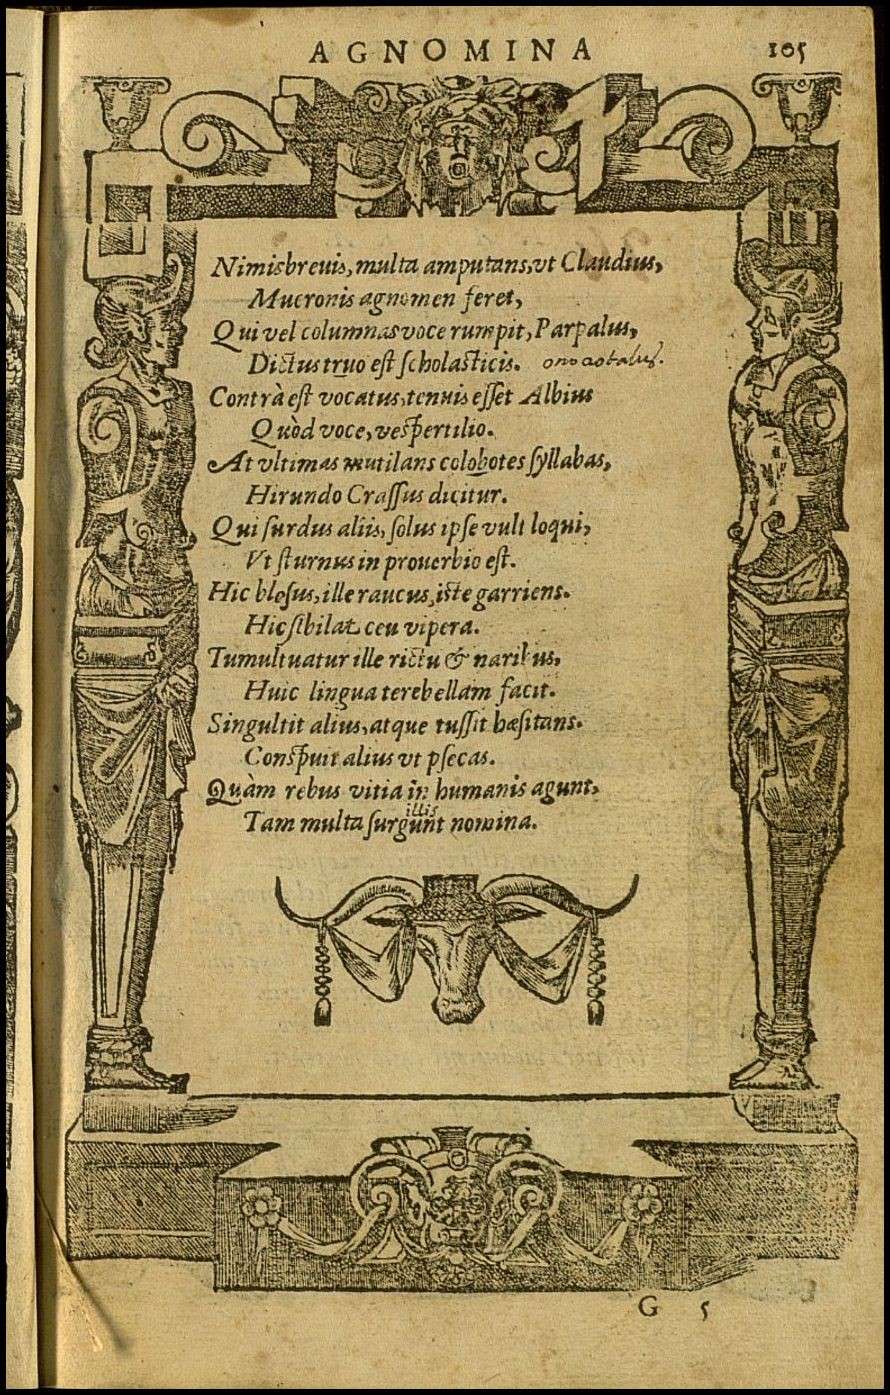 AGNOMINA 105
Nimis breuis, multa amputans, vt Claudius,
Mucronis agnomen feret,
Qui vel columnas voce rumpit, Parpalus,
Dictus truo est scholasticis. onocrotalus.
Contrà est vocatus, tenuis esset Albius
Quòd voce, vespertilio.
At vltimas mutilans colobotes syllabas,
Hirundo Crassus dicitur.
Qui surdus aliis, solus ipse vult loqui,
Vt sturnus in prouerbio est.
Hic blesus, ille raucus, iste garriens.
Hic sibilat ceu vipera.
Tumultuatur ille rictu & naribus,
Huic lingua terebellam facit.
Singultit alius, atque tussit hæsitans.
Conspuit alius vt psecas.
Quàm rebus vitia in humanis agunt,
illis
Tam multa surgunt nomina.
G 5